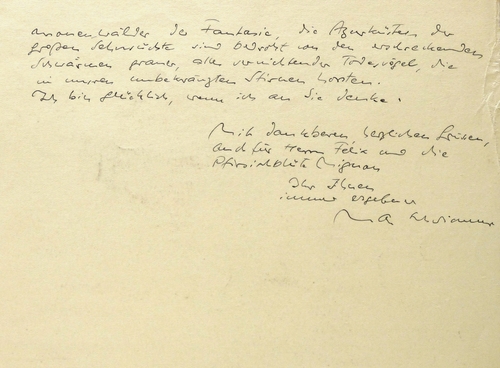 wälder der Fantasie, die Azurküsten der
großen Sehnsüchte sind bedroht von den erschreckenden
Schwärmen grauer, alles vernichtender Todesvögel, die
in unseren unbekränzten Stirnen horsten.
Ich bin glücklich, wenn ich an Sie denke.
Mit dankbaren herzlichen Grüssen,
auch für Herrn Felix und die
Pfirsichblüte Mignon
Ihr Ihnen
immer ergebener